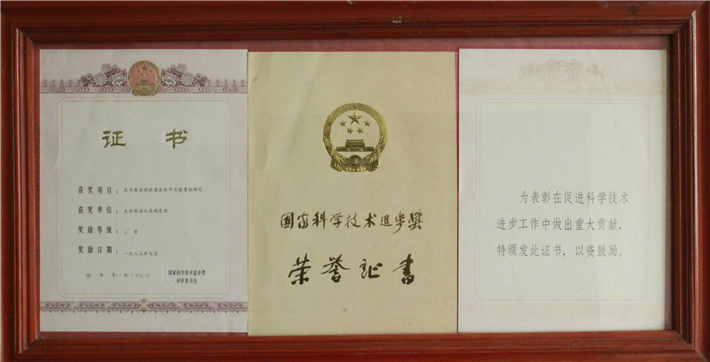 证书
获奖项目:
获奖单位:
奖励等级:
奖励日期: 一九八七年七月
证书号:
国家科学技术进步奖
评审委员会
国家科学技术进步奖
荣誉证书
为表彰在促进科学技术
进步工作中做出重大贡献,
特颁发此证书,以资鼓励。